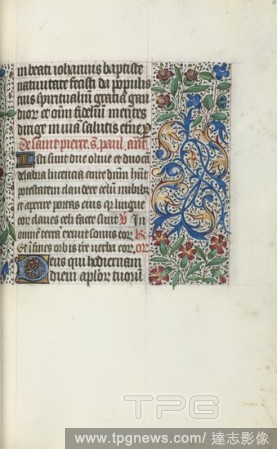 in beati iohannis baptiste
natiuitate fecisti da populis
tuis spiritualium gratiam gau
dior et oim fidelium mentes
dirige in uiam salutis eterne p
De saint pierre. s. paul. ant.
Isti sunt due oliue et duo
labia lucencia ante dnm habent
potestatem claudere celum nubibz
et aperire portas eius qr lingue
eor claues celi facte sunt V In
omnem terram exiuit sonus eor R
Et in fines orbis tre uerba eor. or
Deus qui hodiernam
diem aplor tuorum
TPG
www.tpgnews.com/ 達志影像